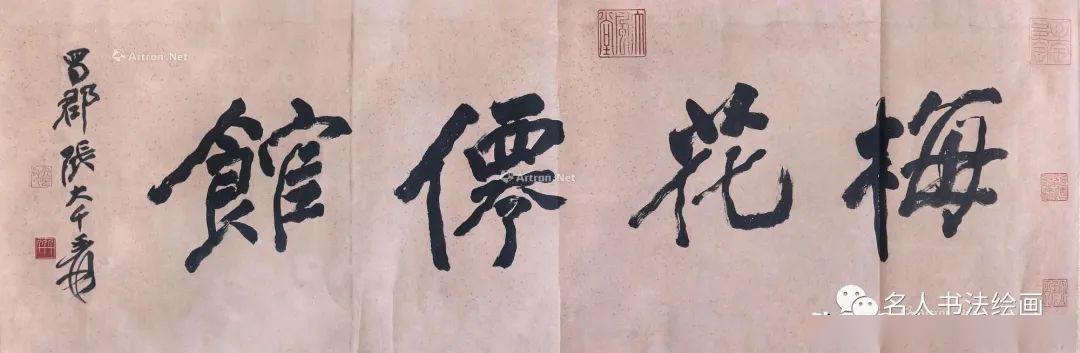 梅花僊館
蜀郡張大千爰
大風堂
Artron.Net
Artron.Net
名人书法绘画